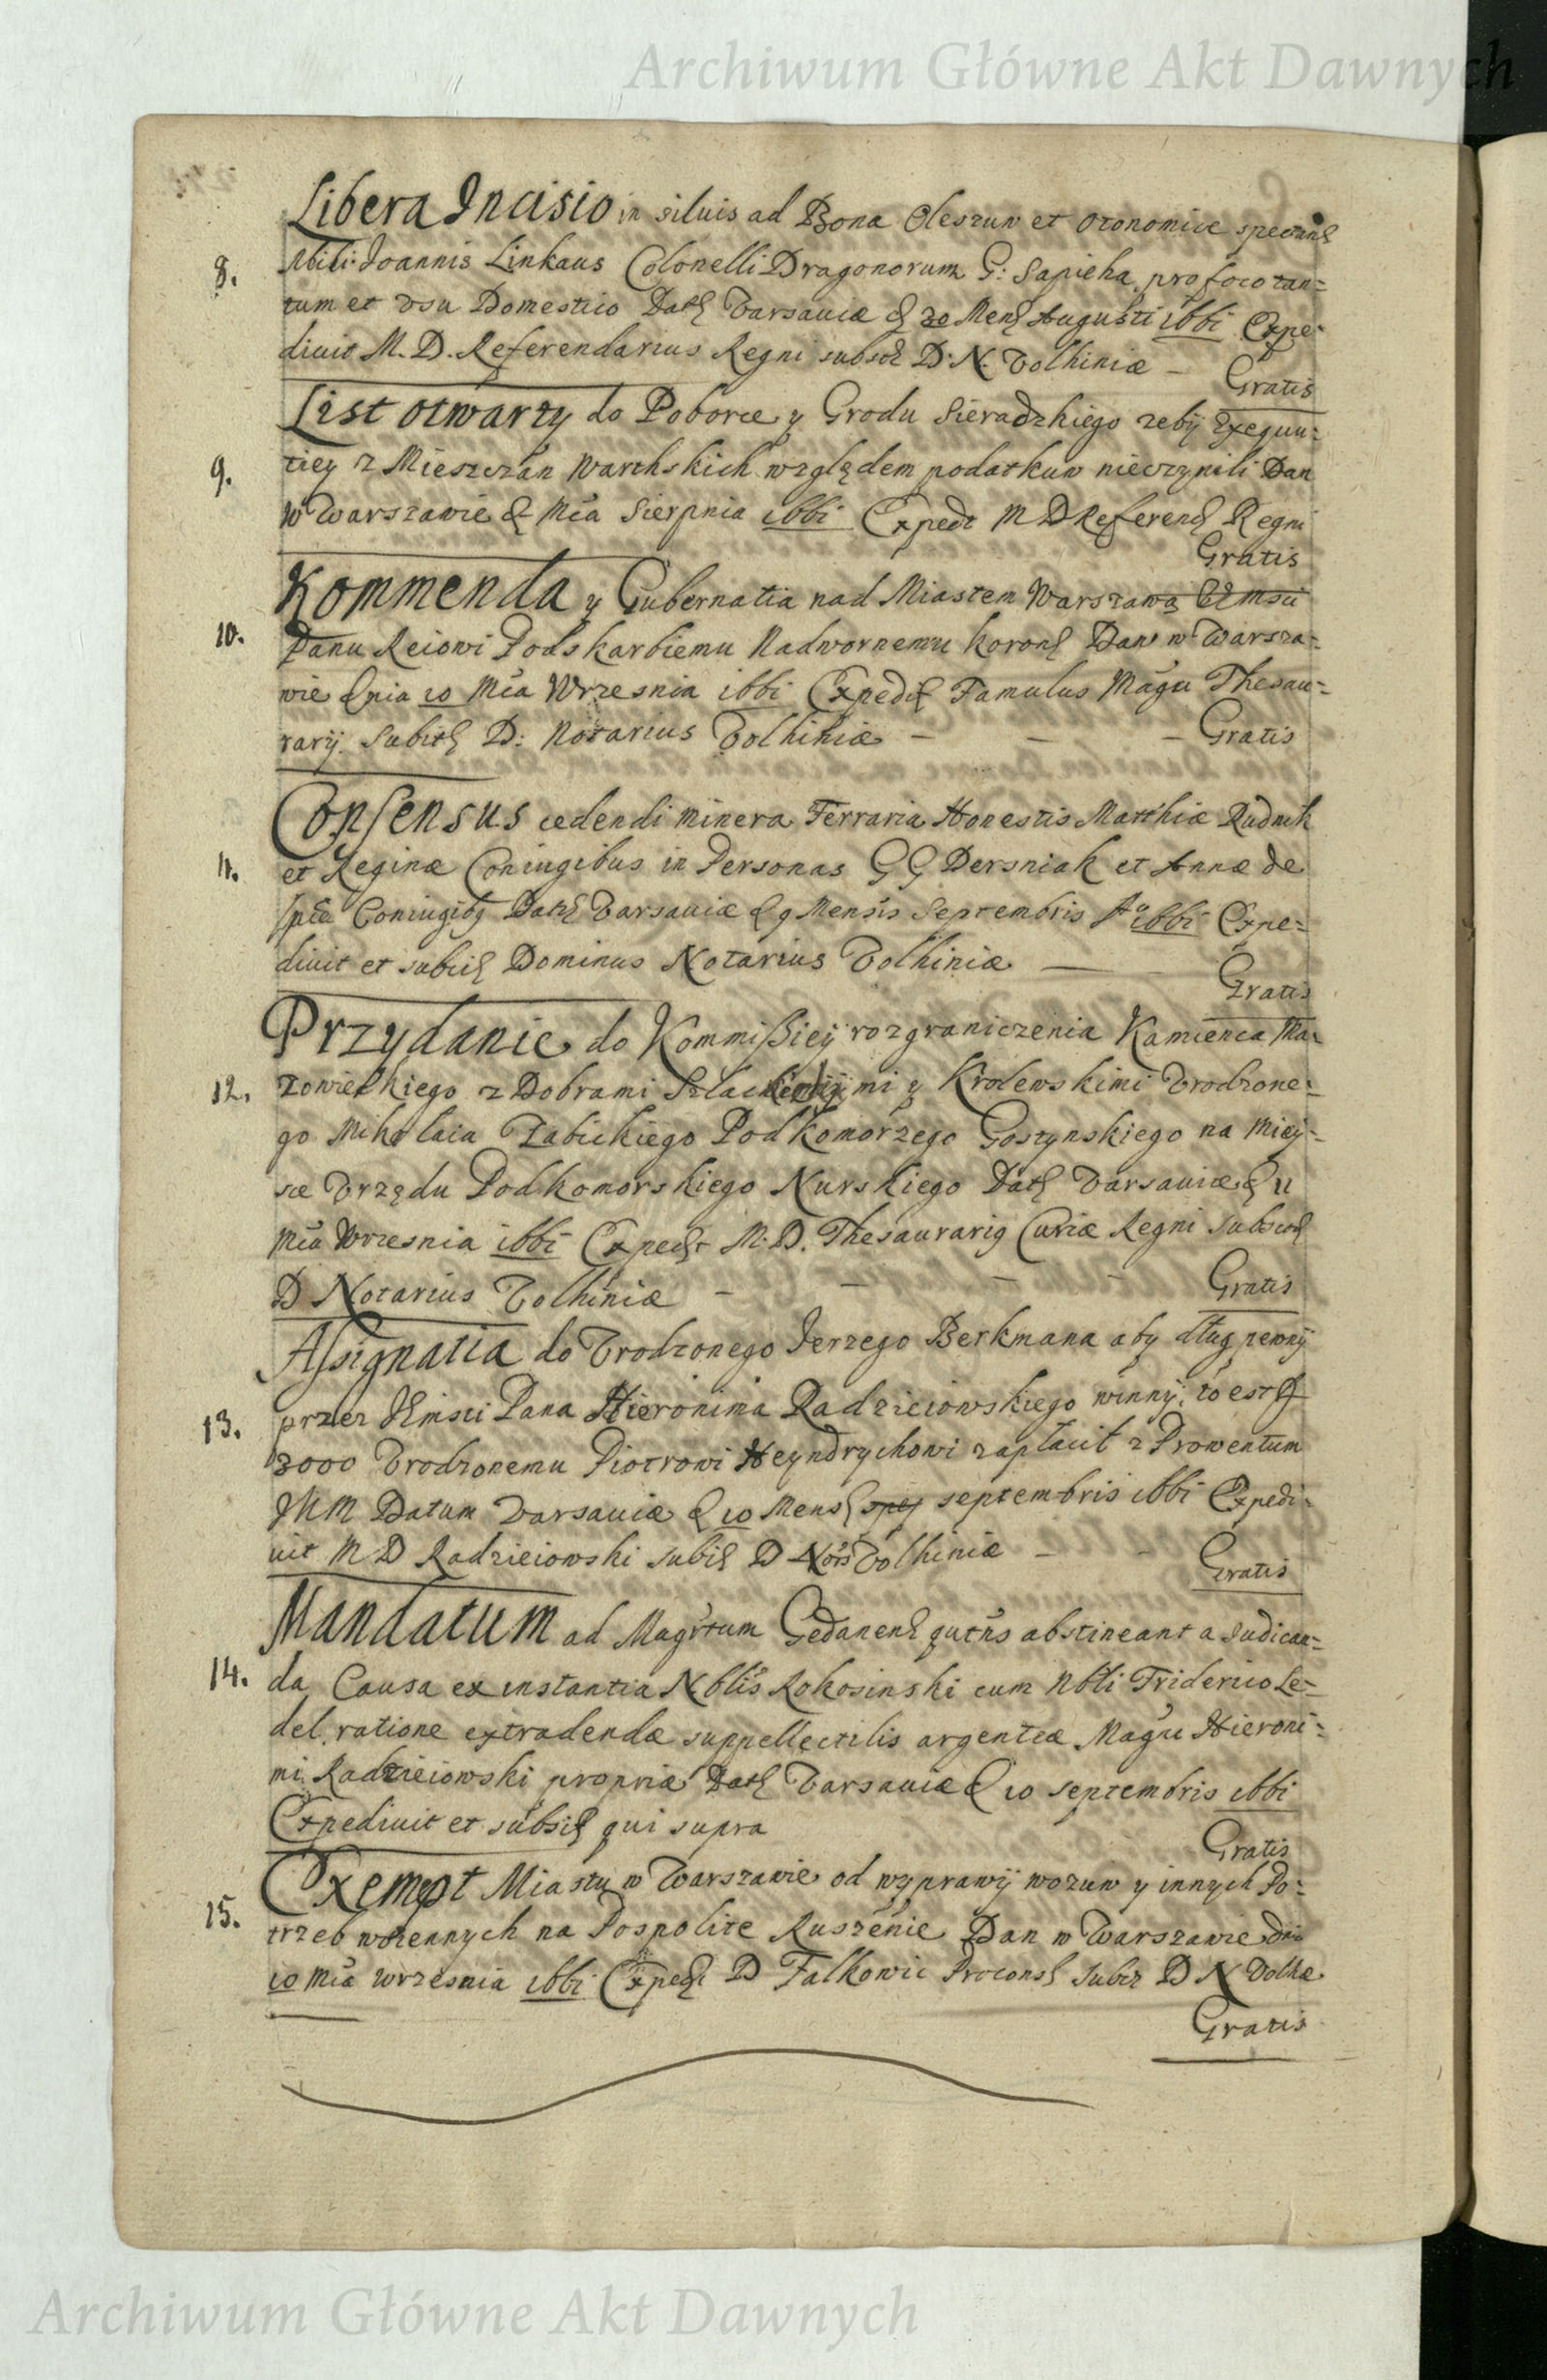 Archiwum Główne Akt Dawnych
Libera Incisio in siluis ad Bona Oleszun et Oronomiæ spectans
8. Nbili Joannis Linkaus Colonelli Dragonorum G: Sapieha, pro foco tan=
tum et vsu Domestico Dat Varsauiæ d 30 Mens Augusti ibbi Expe=
diuit M. D. Referendarius Regni subscr D: N. Volhiniæ - Gratis
List otwarty do Poborce y Grodu Sieradzkiego zeby Exequu=
9. tiey z Mieszczan Warthskich względem podatkuw nieczynili Dan
w Warszawie d Mca Sierpnia ibbi Expedt M D Referend Regni
Gratis
Kommenda y Gubernatia nad Miastem Warszawą JEmsci
10. Panu Reiowi Podskarbiemu Nadwornemu Koronn Dan w Warsza=
wie dnia 10 Mca Wrzesnia ibbi Expedit Famulus Magci Thesau=
rarij. Subscr D: Notarius Volhiniæ - - - Gratis
Consensus cedendi Minera Ferraria Honestis Matthiæ Rudnik
11. et Reginæ Coniugibus in Personas G G Dersniak et Annæ de
Coniugibq Dat Varsauiæ d 9 Mensis Septembris Ao ibbi Expe=
diuit et subscr Dominus Notarius Volhiniæ — Gratis
Przydanie do Kommißiey rozgraniczenia Kamienca Ma=
12. zowieckiego z Dobrami mi y Krolewskimi Vrodzone=
go Mikolaia Zabickiego Podkomorzego Gostynskiego na Miey=
sce Vrzędu Podkomorskiego Nurskiego Dat Varsauiæ d 11
Mca Wrzesnia ibbi Expedt M. D. Thesaurarig Curiæ Regni subscr
D Notarius Volhiniæ - - - - Gratis
Assignatia do Vrodzonego Jerzego Berkmana aby dług pewny
13. przez JEmsci Pana Hieronima Radzieiowskiego winny, to est f
3000 Vrodzonemu Piotrowi Heyndrychowi zapłacił z Prowentum
JKM Datum Varsauiæ d 10 Mens septembris ibbi Expedi=
uit M D Radzieiowski subscr D Nots Volhiniæ - - Gratis
Mandatum ad Magrtum Gedanens qutns abstineant a Judican=
14. da Causa ex instantia Nblis Rokosinski cum Nbli Friderico Le=
del, ratione extradendæ suppellectilis argenteæ Magci Hieroni=
mi Radzieiowski propriæ Dat Varsauiæ d 10 septembris ibbi
Expediuit et subscr qui supra
Gratis
Exempt Miastu w Warszawie od wyprawy wozuw y innych Po=
15. trzeb woiennych na Pospolite Ruszenie Dan w Warszawie dn
10 Mca wrzesnia ibbi Expedt D Falkowic Procons Subscr D N Volhæ
Gratis
Archiwum Główne Akt Dawnych